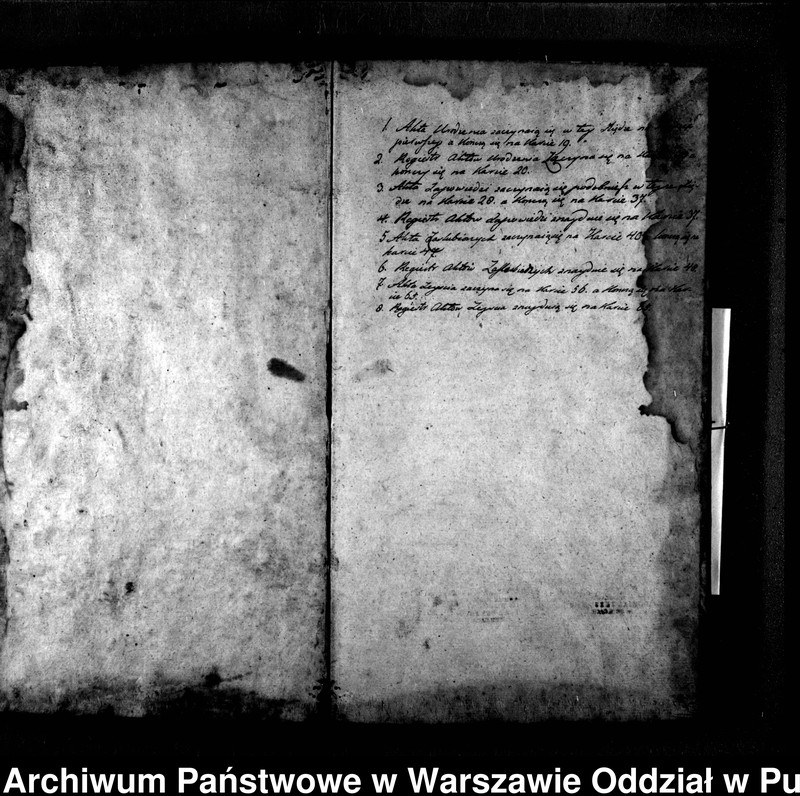 1. Akta Urodzenia zaczynaią się w tey Xiędze na
pierwszey a kończą się na Karcie 19.
2. Regiestr Aktów Urodzenia Zaczyna się na
kończy się na Karcie 20.
3. Akta Zapowiedzi zaczynaią się podobnież w teyże
dze na Karcie 28. a Kończą się na Karcie 37.
4. Regiestr Aktów Zapowiedzi znayduie się na Karcie 37.
5. Akta Zaślubionych zaczynaią się na Karcie 40
karcie 47
6. Regiestr Aktów Zaślubionych znayduie się na Karcie 48.
7. Akta Zeyścia zaczyna się na Karcie 56. a Kończą się na Kar
cie 65.
8. Regiestr Aktów Zeyścia znayduią się na Karcie
Archiwum Państwowe w Warszawie Oddział w Pu